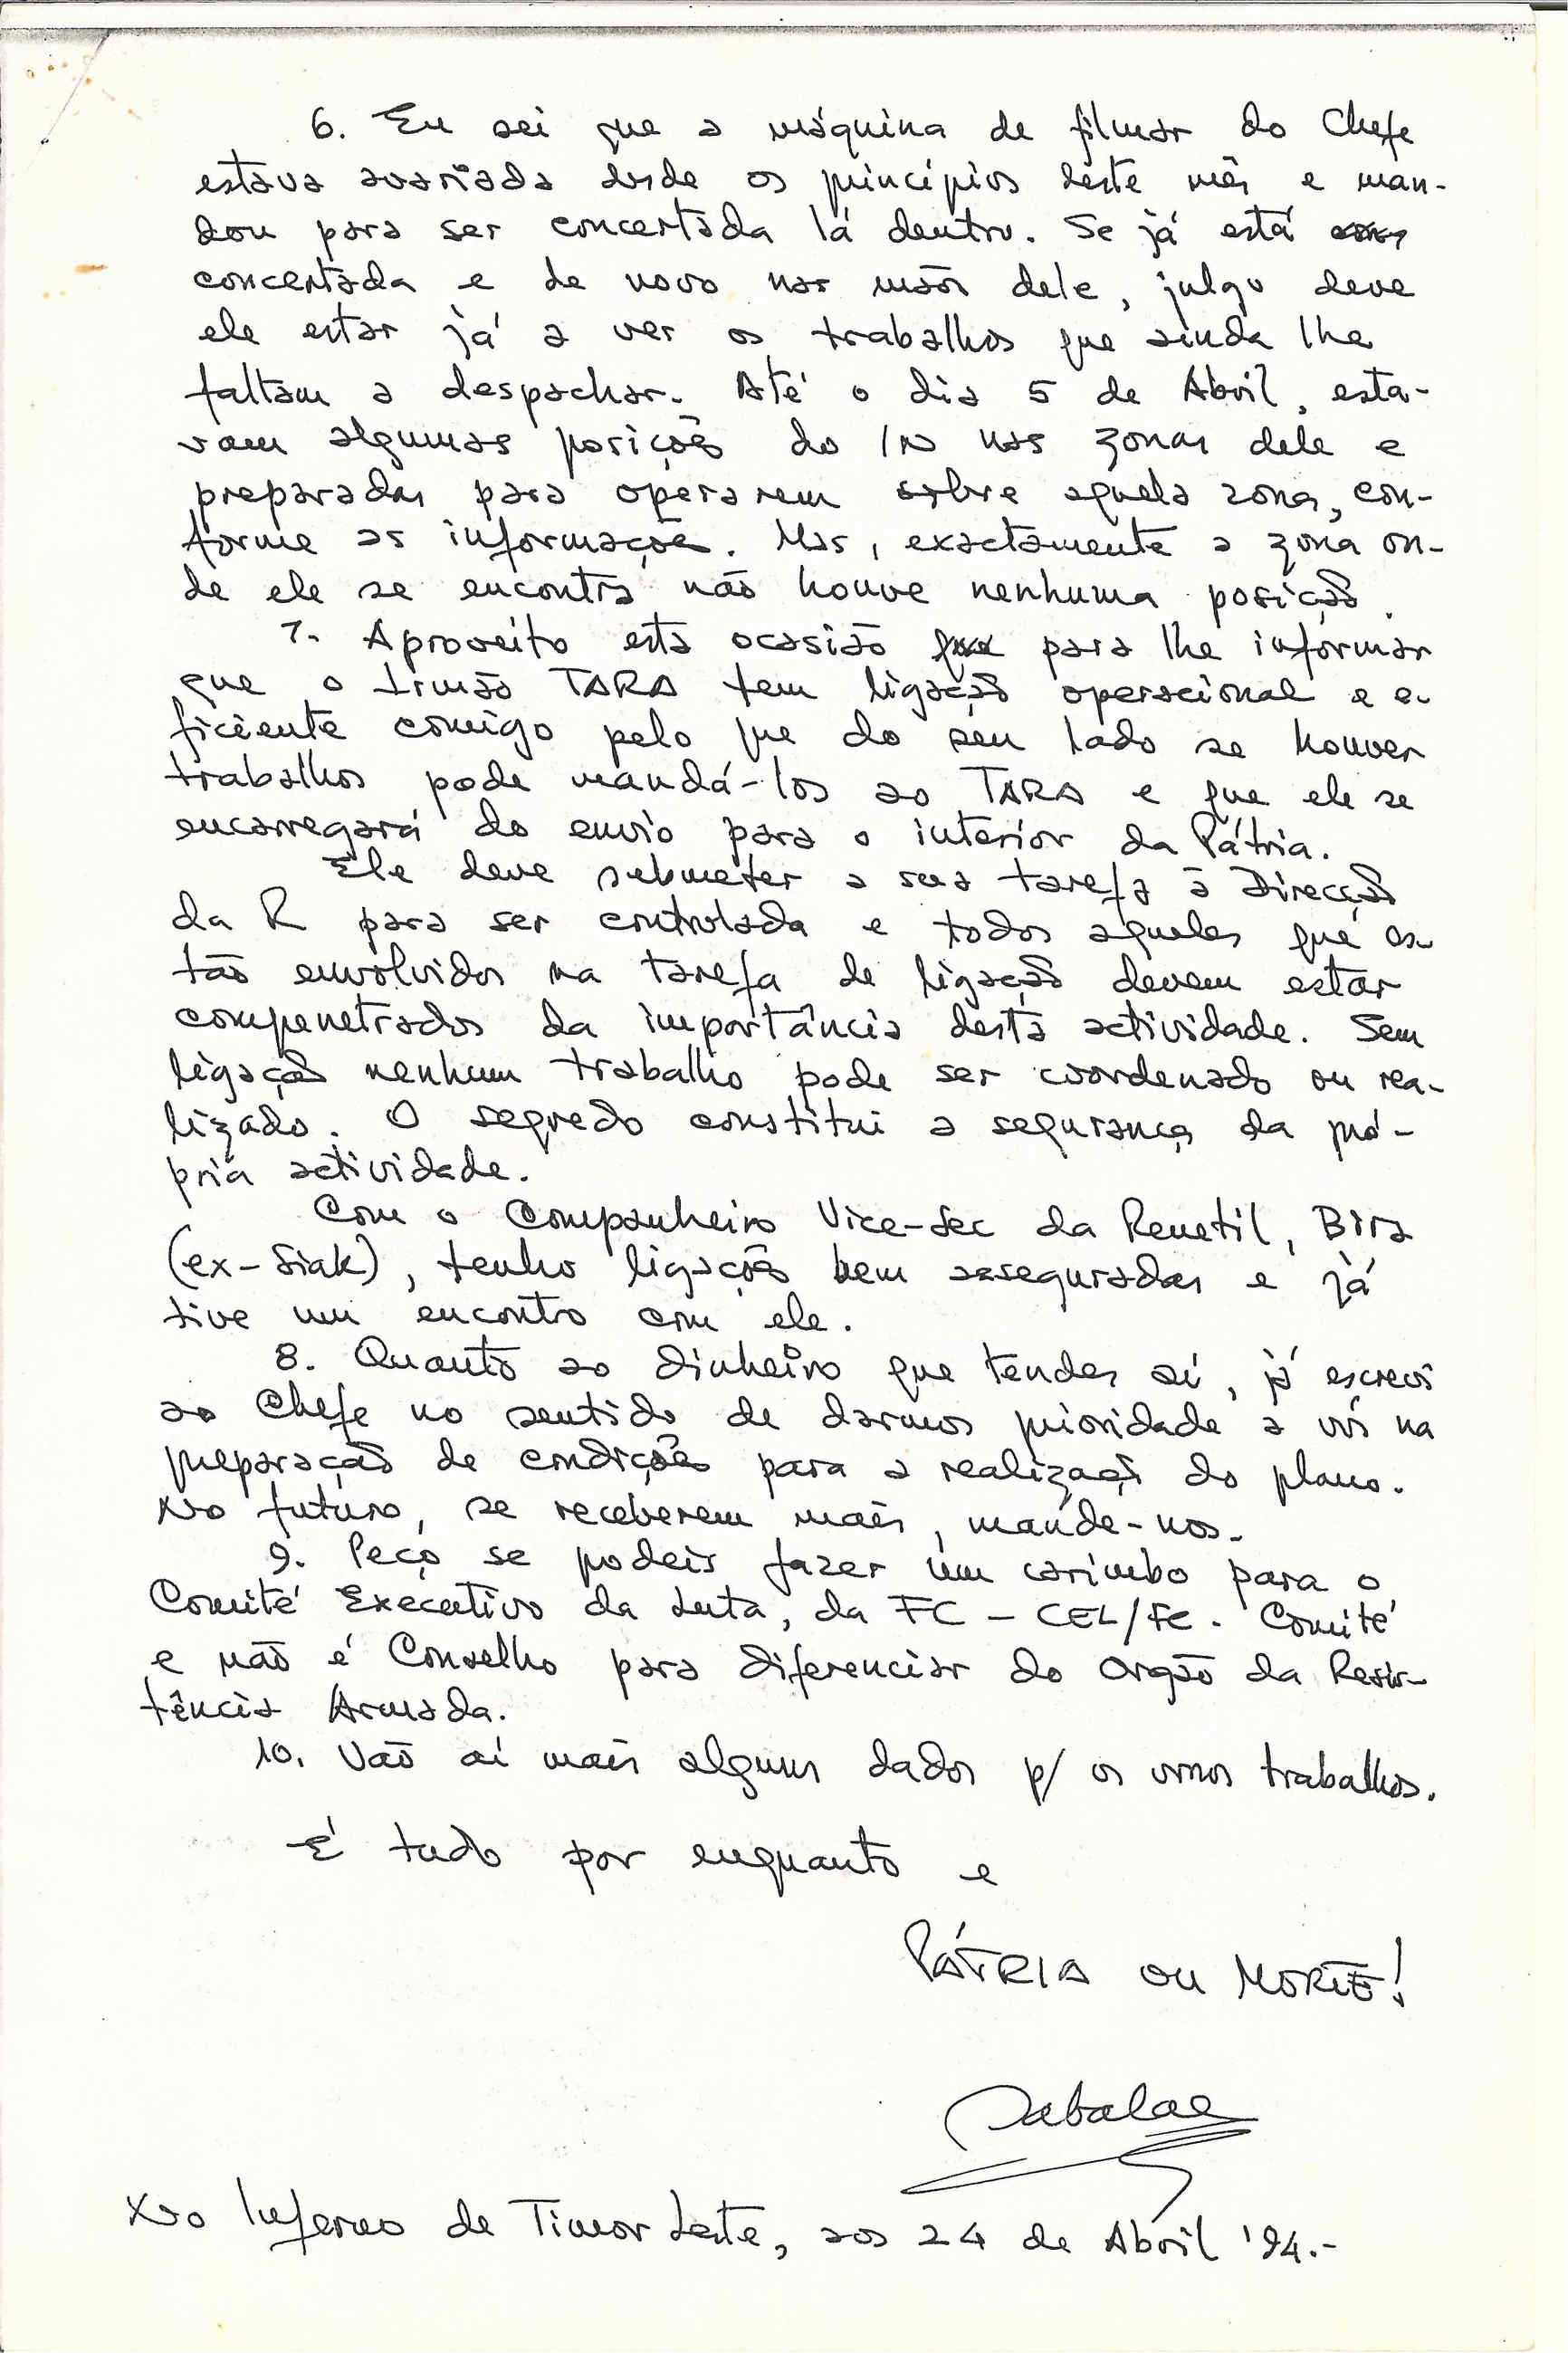 6. Eu sei que a máquina de filmar do Chefe
estava avariada desde os princípios deste mês e man-
dou para ser concertada lá dentro. Se já está
concertada e de novo nas mãos dele, julgo deve
ele estar já a ver os trabalhos que ainda lhe
faltam a despachar. Até o dia 5 de Abril, esta-
vam algumas posições do IN nas zonas dele e
preparadas para operarem sobre aquela zona, con-
forme as informações. Mas, exactamente a zona on-
de ele se encontra não houve nenhuma posição.
7. Aproveito esta ocasião para lhe informar
que o Irmão TARA tem ligação operacional e e-
ficiente comigo pelo que do seu lado se houver
trabalhos pode mandá-los ao TARA e que ele se
encarregará do envio para o interior da Pátria.
Ele deve submeter a sua tarefa à Direcção
da R para ser controlada e todos aqueles que es-
tão envolvidos na tarefa de ligação devem estar
compenetrados da importância desta actividade. Sem
ligação nenhum trabalho pode ser coordenado ou rea-
lizado. O segredo constitui a segurança da pró-
pria actividade.
Com o Companheiro Vice-Sec da Renetil, Bira
(ex-Siak), tenho ligações bem asseguradas e já
tive um encontro com ele.
8. Quanto ao dinheiro que tendes aí, já escrevi
ao Chefe no sentido de darmos prioridade a vós na
preparação de condições para a realização do plano.
No futuro, se receberem mais, mande-nos.
9. Peço se podeis fazer um carimbo para o
Comité Executivo da Luta, da FC - CEL/FC. Comité
e não é Conselho para diferenciar do Orgão da Resis-
tência Armada.
10. Vão aí mais alguns dados p/ os vossos trabalhos.
É tudo por enquanto e
PÁTRIA OU MORTE!
Sabalae
No Inferno de Timor Leste, aos 24 de Abril '94.-